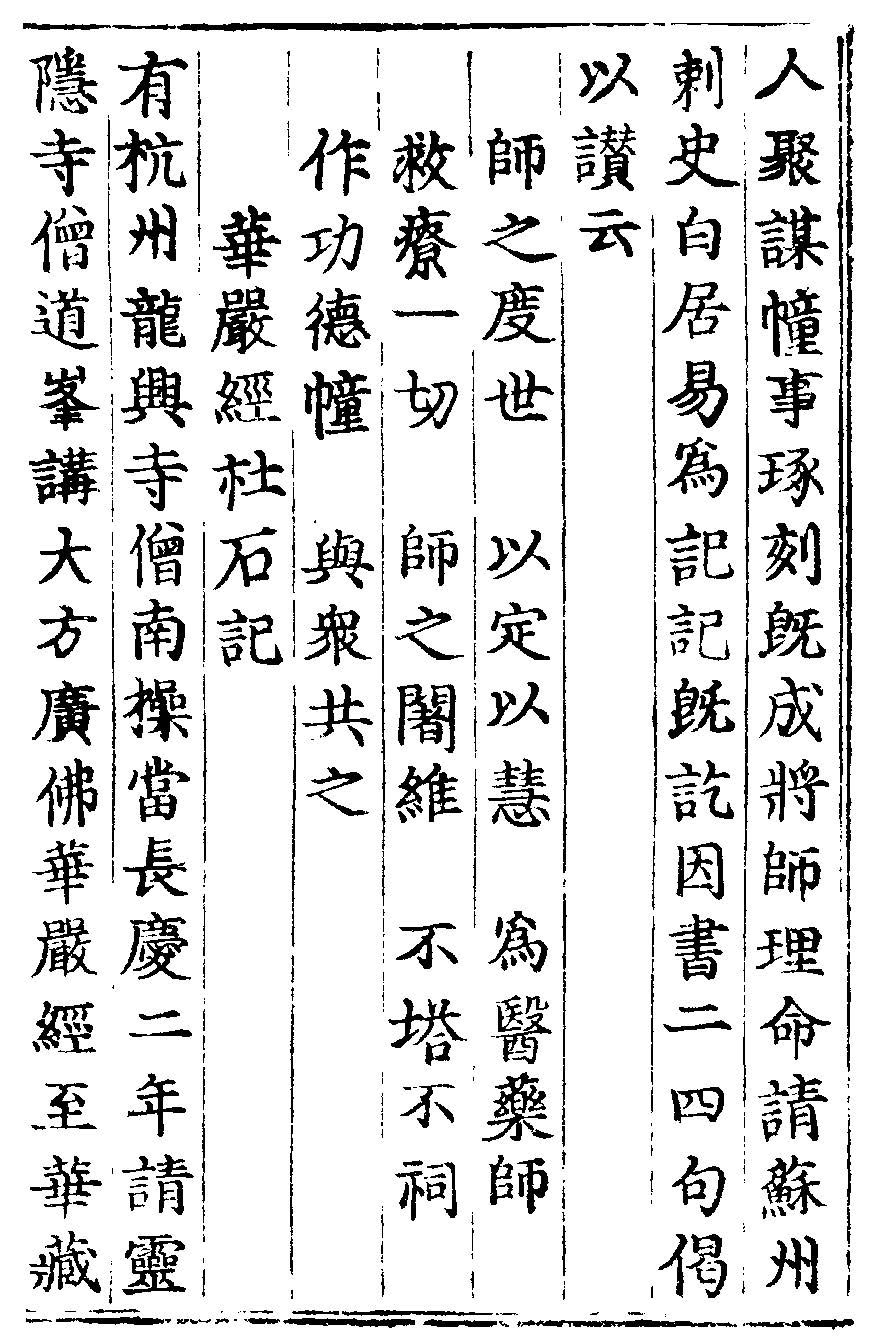 人聚謀幢事琢刻旣成將師理命請蘇州
刺史白居易爲記記旣訖因書二四句偈
以讃云
師之度世　以定以慧　爲醫藥師
救療一切　師之闍維　不塔不祠
作功德幢　與衆共之
華嚴經社石記
有杭州龍興寺僧南操當長慶二年請靈
隱寺僧道峯講大方廣佛華嚴經至華藏